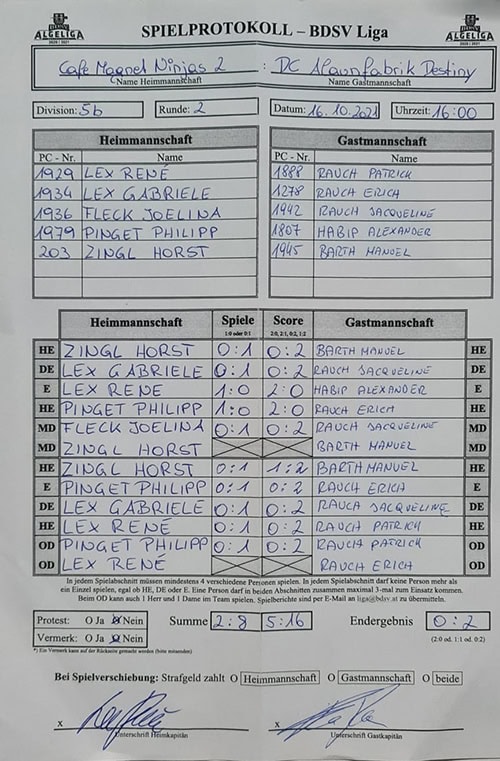 ALGELIGA
2020 / 2021
SPIELPROTOKOLL – BDSV Liga
ALGELIGA
2020 / 2021
Cafe Magnet Ninjas 2 : DC Alaunfabrik Destiny
Name Heimmannschaft Name Gastmannschaft
Division: 5b Runde: 2 Datum: 16.10.2021 Uhrzeit: 16:00
Heimmannschaft Gastmannschaft
PC - Nr. Name PC - Nr. Name
1929 LEX RENÉ 1888 RAUCH PATRICK
1934 LEX GABRIELE 1278 RAUCH ERICH
1936 FLECK JOELINA 1942 RAUCH JACQUELINE
1979 PINGET PHILIPP 1807 HABIP ALEXANDER
203 ZINGL HORST 1945 BARTH MANUEL
Heimmannschaft Spiele Score Gastmannschaft
1:0 oder 0:1 2:0, 2:1, 0:2, 1:2
HE ZINGL HORST 0:1 0:2 BARTH MANUEL HE
DE LEX GABRIELE 0:1 0:2 RAUCH JACQUELINE DE
E LEX RENE 1:0 2:0 HABIP ALEXANDER E
HE PINGET PHILIPP 1:0 2:0 RAUCH ERICH HE
MD FLECK JOELINA 0:1 0:2 RAUCH JACQUELINE MD
MD ZINGL HORST BARTH MANUEL MD
HE ZINGL HORST 0:1 1:2 BARTH MANUEL HE
E PINGET PHILIPP 0:1 0:2 RAUCH ERICH E
DE LEX GABRIELE 0:1 0:2 RAUCH JACQUELINE DE
HE LEX RENE 0:1 0:2 RAUCH PATRICK HE
OD PINGET PHILIPP 0:1 0:2 RAUCH PATRICK OD
OD LEX RENE RAUCH ERICH OD
In jedem Spielabschnitt müssen mindestens 4 verschiedene Personen spielen. In jedem Spielabschnitt darf keine Person mehr als
ein Einzel spielen, egal ob HE, DE oder E. Eine Person darf in beiden Abschnitten zusammen maximal 3-mal zum Einsatz kommen.
Beim OD kann auch 1 Herr und 1 Dame im Team spielen. Spielberichte sind per E-Mail an liga@bdsv.at zu übermitteln.
Protest: O Ja O Nein Summe 2:8 5:16 Endergebnis 0:2
Vermerk: O Ja O Nein (2:0 od. 1:1 od. 0:2)
*) Ein Vermerk kann auf der Rückseite gemacht werden (bitte mitsenden)
Bei Spielverschiebung: Strafgeld zahlt O Heimmannschaft O Gastmannschaft O beide
x x
Unterschrift Heimkapitän Unterschrift Gastkapitän